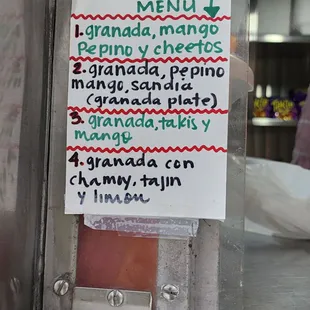 MENU ↓
1. granada, mango
Pepino y cheetos
2. granada, pepino
mango, sandia
(granada plate)
3. granada, takis y
mango
4. granada con
chamoy, tajin
y limon